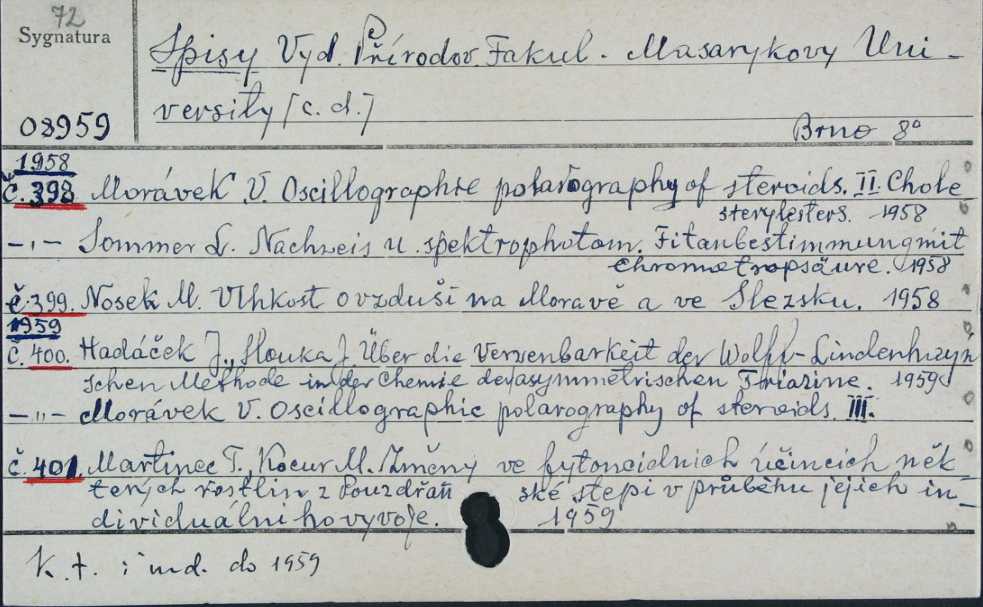 72
Sygnatura
Spisy Vyd. Přírodov. Fakul. Masarykovy Uni-
versity [c. d.]
08959
Brno 8°
1958
č. 398 Morávek V. Oscillographie polarography of steroids. II. Chole
sterylesters. 1958
– „ – Sommer L. Nachweis u. spektrophotom. Titanbestimmung mit
Chromotropsäure. 1958
č. 399. Nosek M. Vlhkost ovzduší na Moravě a ve Slezsku. 1958
1959
č. 400. Hadáček J., Slouka J. Über die Verwenbarkeit der Wolff-Lindenhayn
schen Methode in der Chemie der asymmetrischen Triazine. 1959
– „ – Morávek V. Oscillographic polarography of steroids. III.
č. 401. Martinec T., Kocur M. Změny ve fytoncidnich účincich něk
terých rostlin z Pouzdřan ské stepi v průběhu jejich in-
dividuálniho vyvoje. 1959
K. t. i ind. do 1959